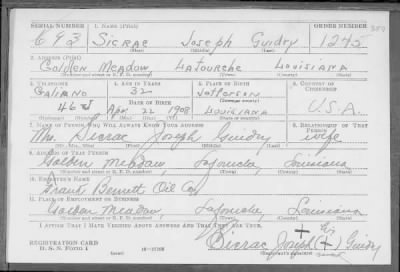 SERIAL NUMBER 1. NAME (Print) ORDER NUMBER
693 Sicrac Joseph Guidry 1245
(First) (Middle) (Last)
2. ADDRESS (Print)
Golden Meadow Lafourche Louisiana
(Number and street or R. F. D. number) (Town) (County) (State)
3. TELEPHONE 4. AGE IN YEARS 5. PLACE OF BIRTH 6. COUNTRY OF CITIZENSHIP
Galiano 32 Jefferson
(Town or county)
DATE OF BIRTH
46 J Apr. 22 1908 Louisiana U.S.A.
(Exchange) (Number) (Mo.) (Day) (Yr.) (State or country)
7. NAME OF PERSON WHO WILL ALWAYS KNOW YOUR ADDRESS 8. RELATIONSHIP OF THAT PERSON
Mrs. Sicrac Joseph Guidry wife
(Mr., Mrs., Miss) (First) (Middle) (Last)
9. ADDRESS OF THAT PERSON
Golden Meadow, Lafourche, Louisiana
(Number and street or R. F. D. number) (Town) (County) (State)
10. EMPLOYER'S NAME
Bennett Oil Co
11. PLACE OF EMPLOYMENT OR BUSINESS
Golden Meadow Lafourche Louisiana
(Number and street or R. F. D. number) (Town) (County) (State)
I AFFIRM THAT I HAVE VERIFIED ABOVE ANSWERS AND THAT THEY ARE TRUE.
REGISTRATION CARD
D. S. S. Form 1
(over)
Sicrac Joseph (X) Guidry
mark